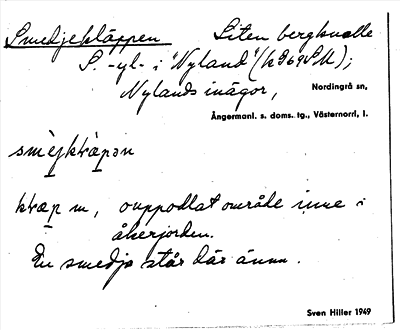 Smedjekläppen   Liten bergknalle
S. -yl- i "Nyland" (h 969 S M);
Nylands inägor,   Nordingrå sn,
Ångermanl. s. doms. tg., Västernorrl. l.
smèjkɬæpən
kɬæp m, ouppodlat område inne i
åkerjorden.
En smedja står där ännu.
Sven Hiller 1949